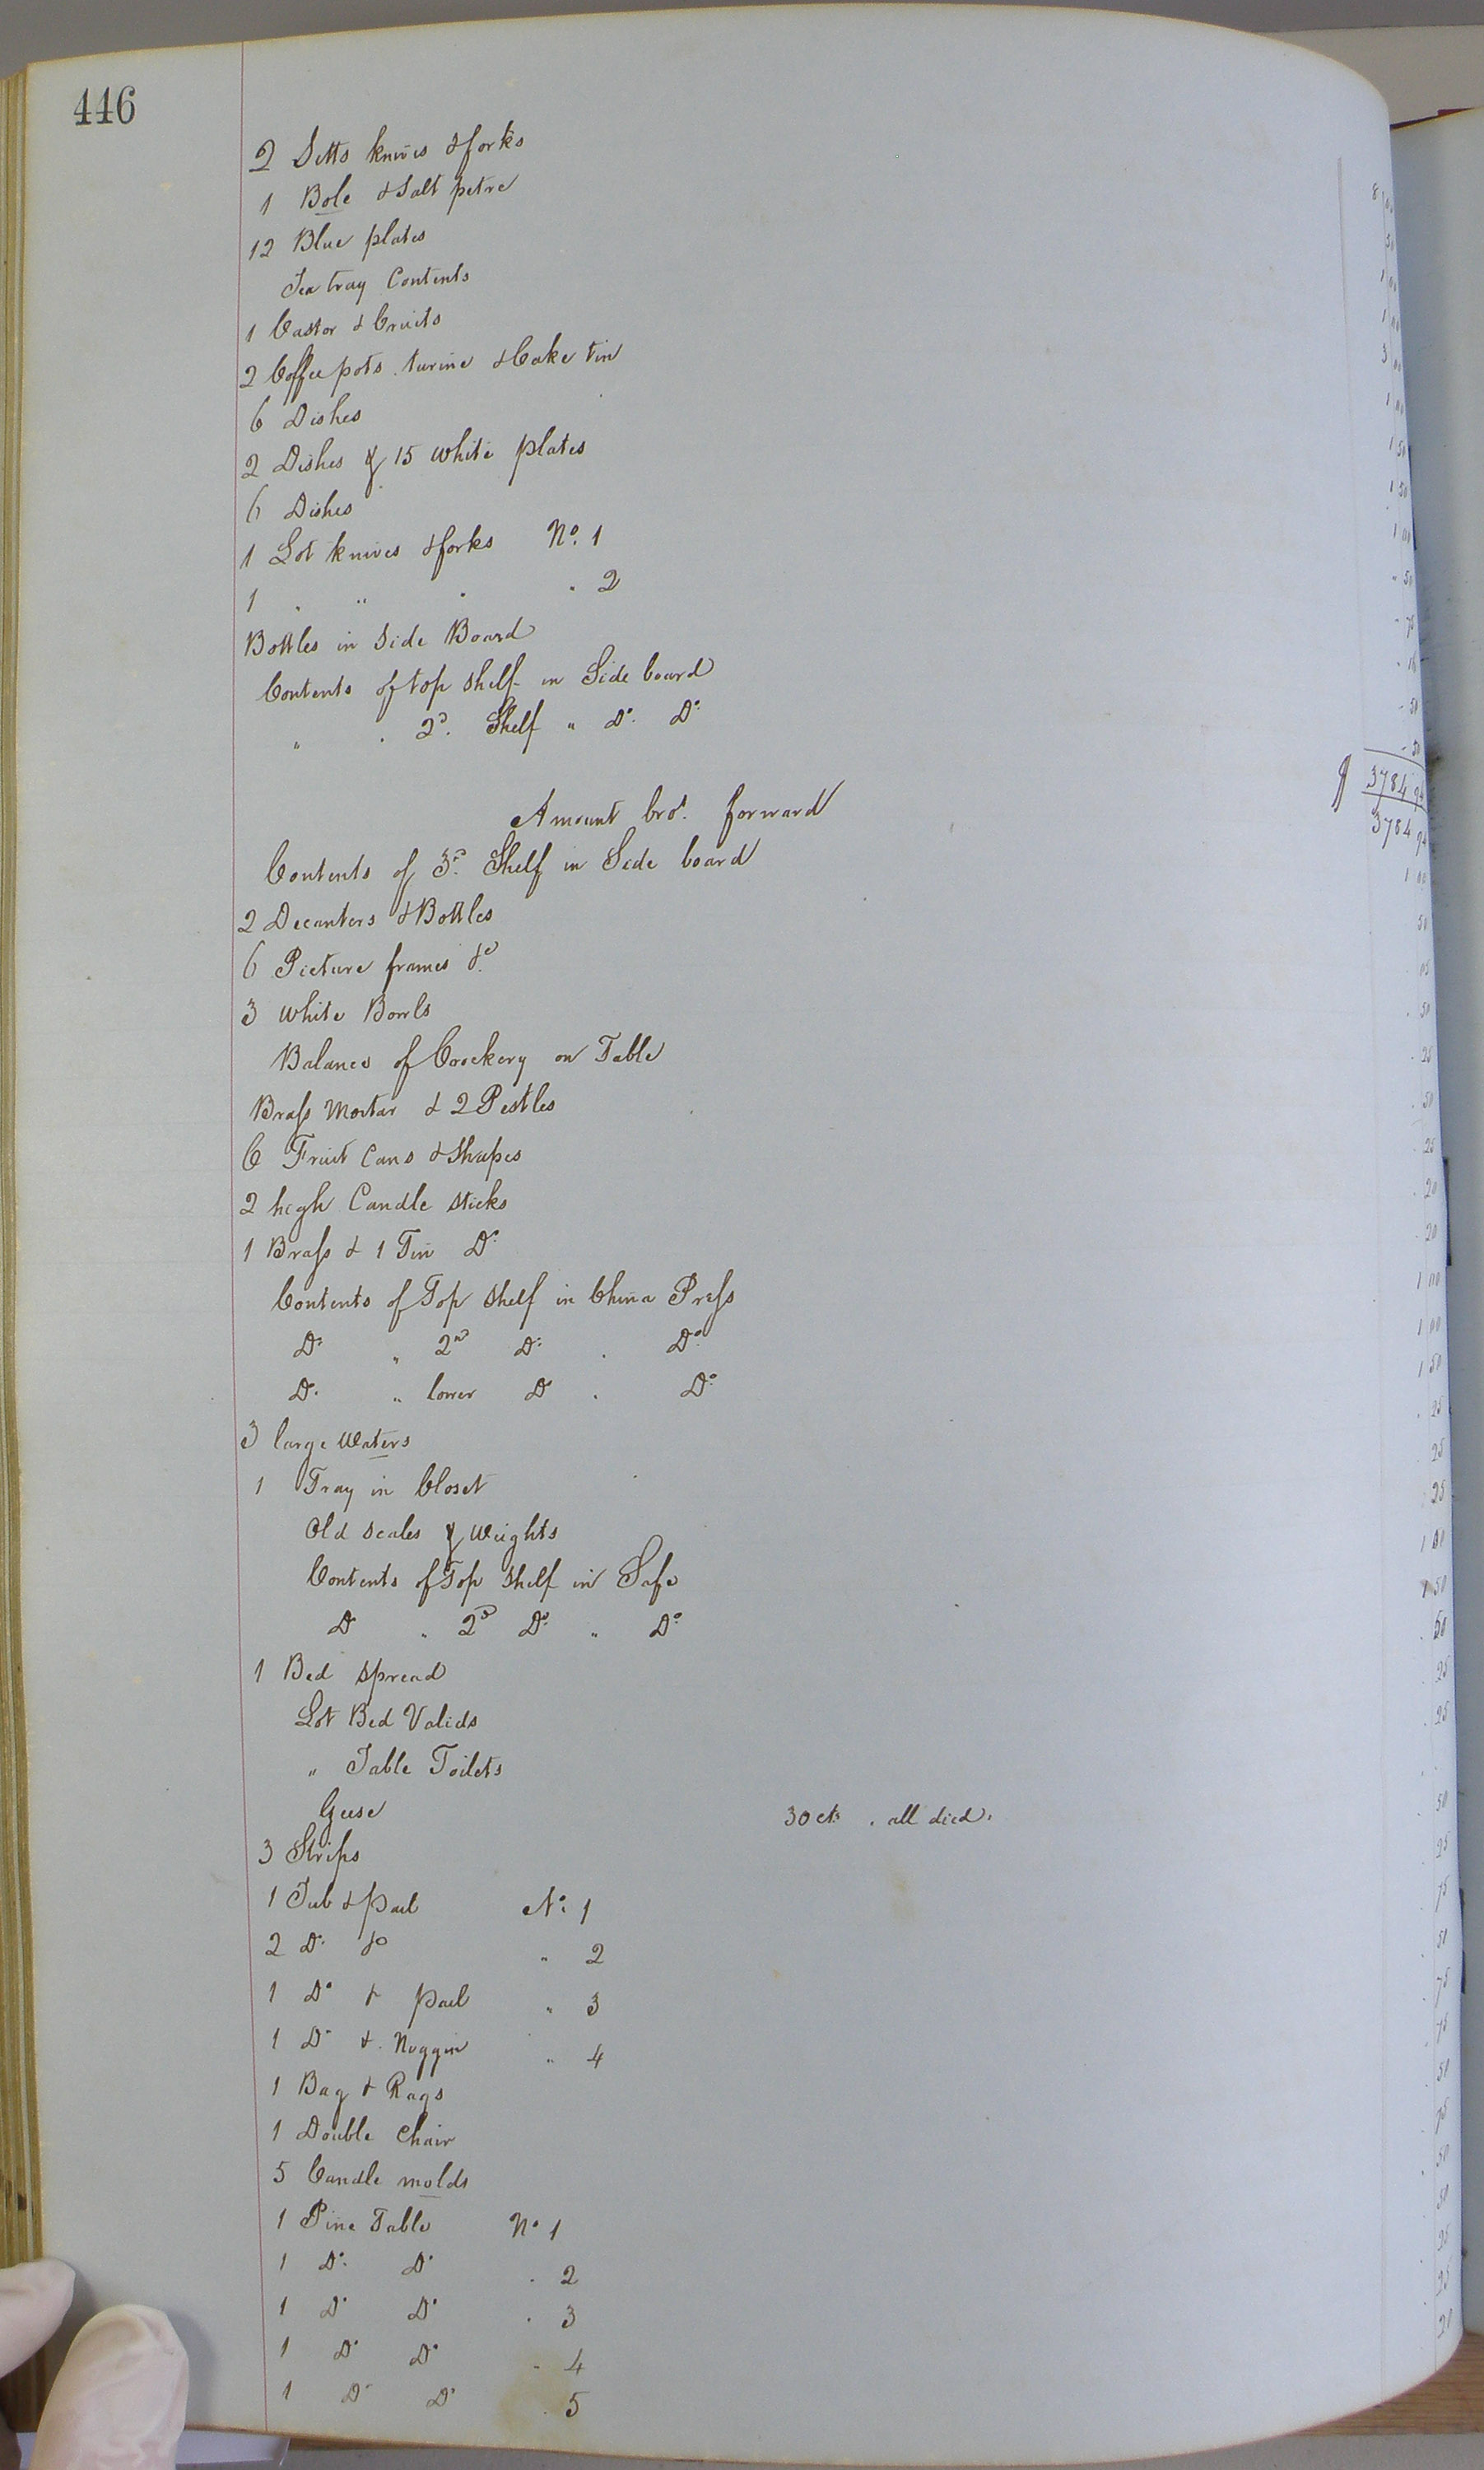 446
2 Setts knives & forks 8
1 Bole & Salt petre 50
12 Blue plates 1
Tea tray Contents 1
1 Castor & Cruits 3
2 Coffee pots . turine & Cake tin 1 00
6 Dishes 1 50
2 Dishes & 15 white plates 1 50
6 Dishes 1 00
1 Lot knives & forks No. 1 " 50
1 " " " " 2 " 75
Bottles in Side Board
Contents of top shelf in Side board " 50
" " 2d. Shelf " Do. Do. " 50
$ 3784 94
Amount bro't. forward 3784 94
Contents of 3d. Shelf in Side board 1 00
2 Decanters & Bottles 50
6 Picture frames &c
3 white Bowls 50
Balance of Crockery on Table 25
Brass Mortar & 2 Pestles 50
6 Fruit Cans & Shapes 25
2 high Candle sticks 20
1 Brass & 1 Tin Do. 20
Contents of Top shelf in China Press 1 00
Do. " 2nd Do. " Do. 1 00
Do. " lower Do " Do. 1 50
3 large Waters 25
1 Tray in Closet 25
Old Scales & Weights 25
Contents of Top Shelf in Safe 1 00
Do " 2d Do. " Do. 1 50
1 Bed spread 50
Lot Bed Valids 25
" Table Toilets 25
Geese 30 cts . all died.
3 Strips 50
1 Tub & pail No. 1 25
2 Do. &c " 2 75
1 Do. & pail " 3 50
1 Do. & Noggin " 4 75
1 Bag & Rags 75
1 Double Chair 50
5 Candle molds 75
1 Pine Table No 1 50
1 Do. Do. " 2 50
1 Do Do. " 3 25
1 Do. Do. " 4 25
1 Do. Do. " 5 20